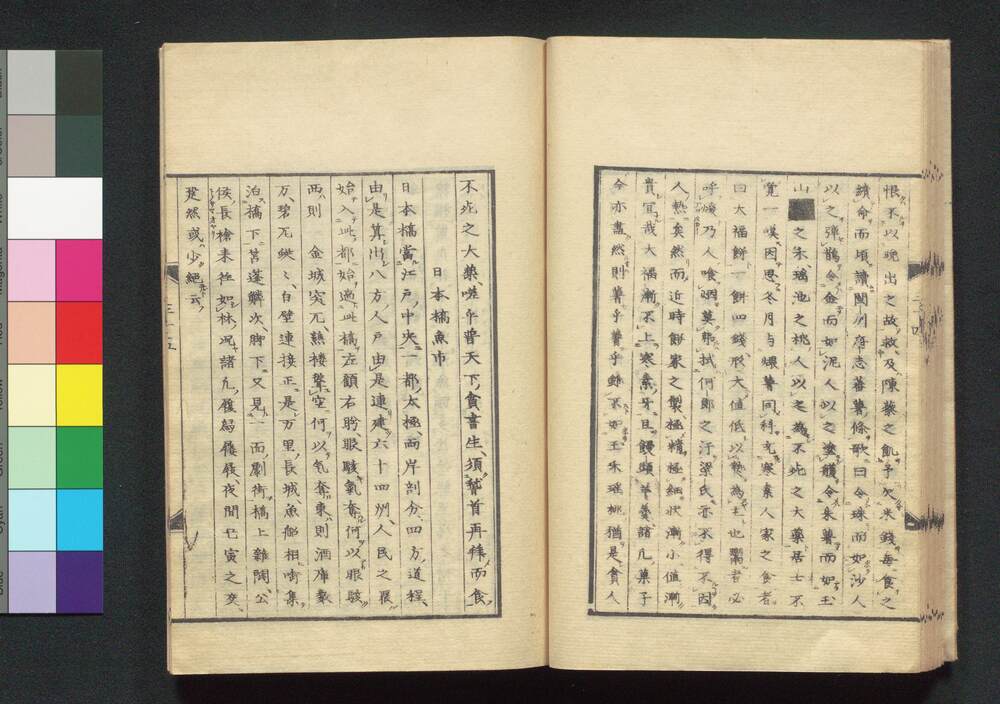 恨不以晩出之故救及陳蔡之飢予欠米錢毎食之
續命而頃讀閩川府志蕃薯條歌曰令珠而如沙人
以之彈鵲令金而如泥人以之塗䨼令朱薯而如玉
山之朱瑤池之桃人以之為不死之大藥居士不
覚一嘆因思冬月与煨薯同科充寒素人家之食者
曰大福餅一餅四錢形大値低以熱為主也鬻者必
呼煖乃人喰咽莫帶拭何郎之汗梁氏亦不得不因
人熱矣然而近時餅家之製極精極細状漸小値漸
貴冝哉大福漸不上寒素牙且饅頭羊羹諸凡菓子
今亦盡然則薯乎薯乎雖不如玉朱瑶桃猶是貧人
不死之大藥嗟乎普天下貧書生須稽首再拝而食
日本橋魚市
日本橋當江戸中央一都太極両岸剖分四方道程
由是算出八方人戸由是連建六十四州人民之履
始入此都始過此橋左顧右盻眼駭氣奪何以眼駭
西則金城突兀熱楼聳空何以気奪東則酒庫蒙
万碧瓦映〻白壁連接正是万里長城魚舩相啣集
泊橋下苫蓬鱗次脚下又見一面劇街橋上雜閙公
侯長槍来往如林况諸凡履舄屐屐夜間乜寅之交
跫然或少絕云